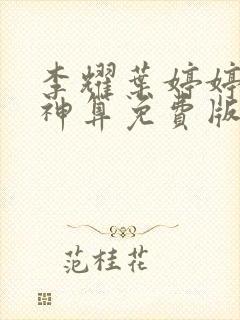 李耀葉婷婷
神算免費版
范桂花